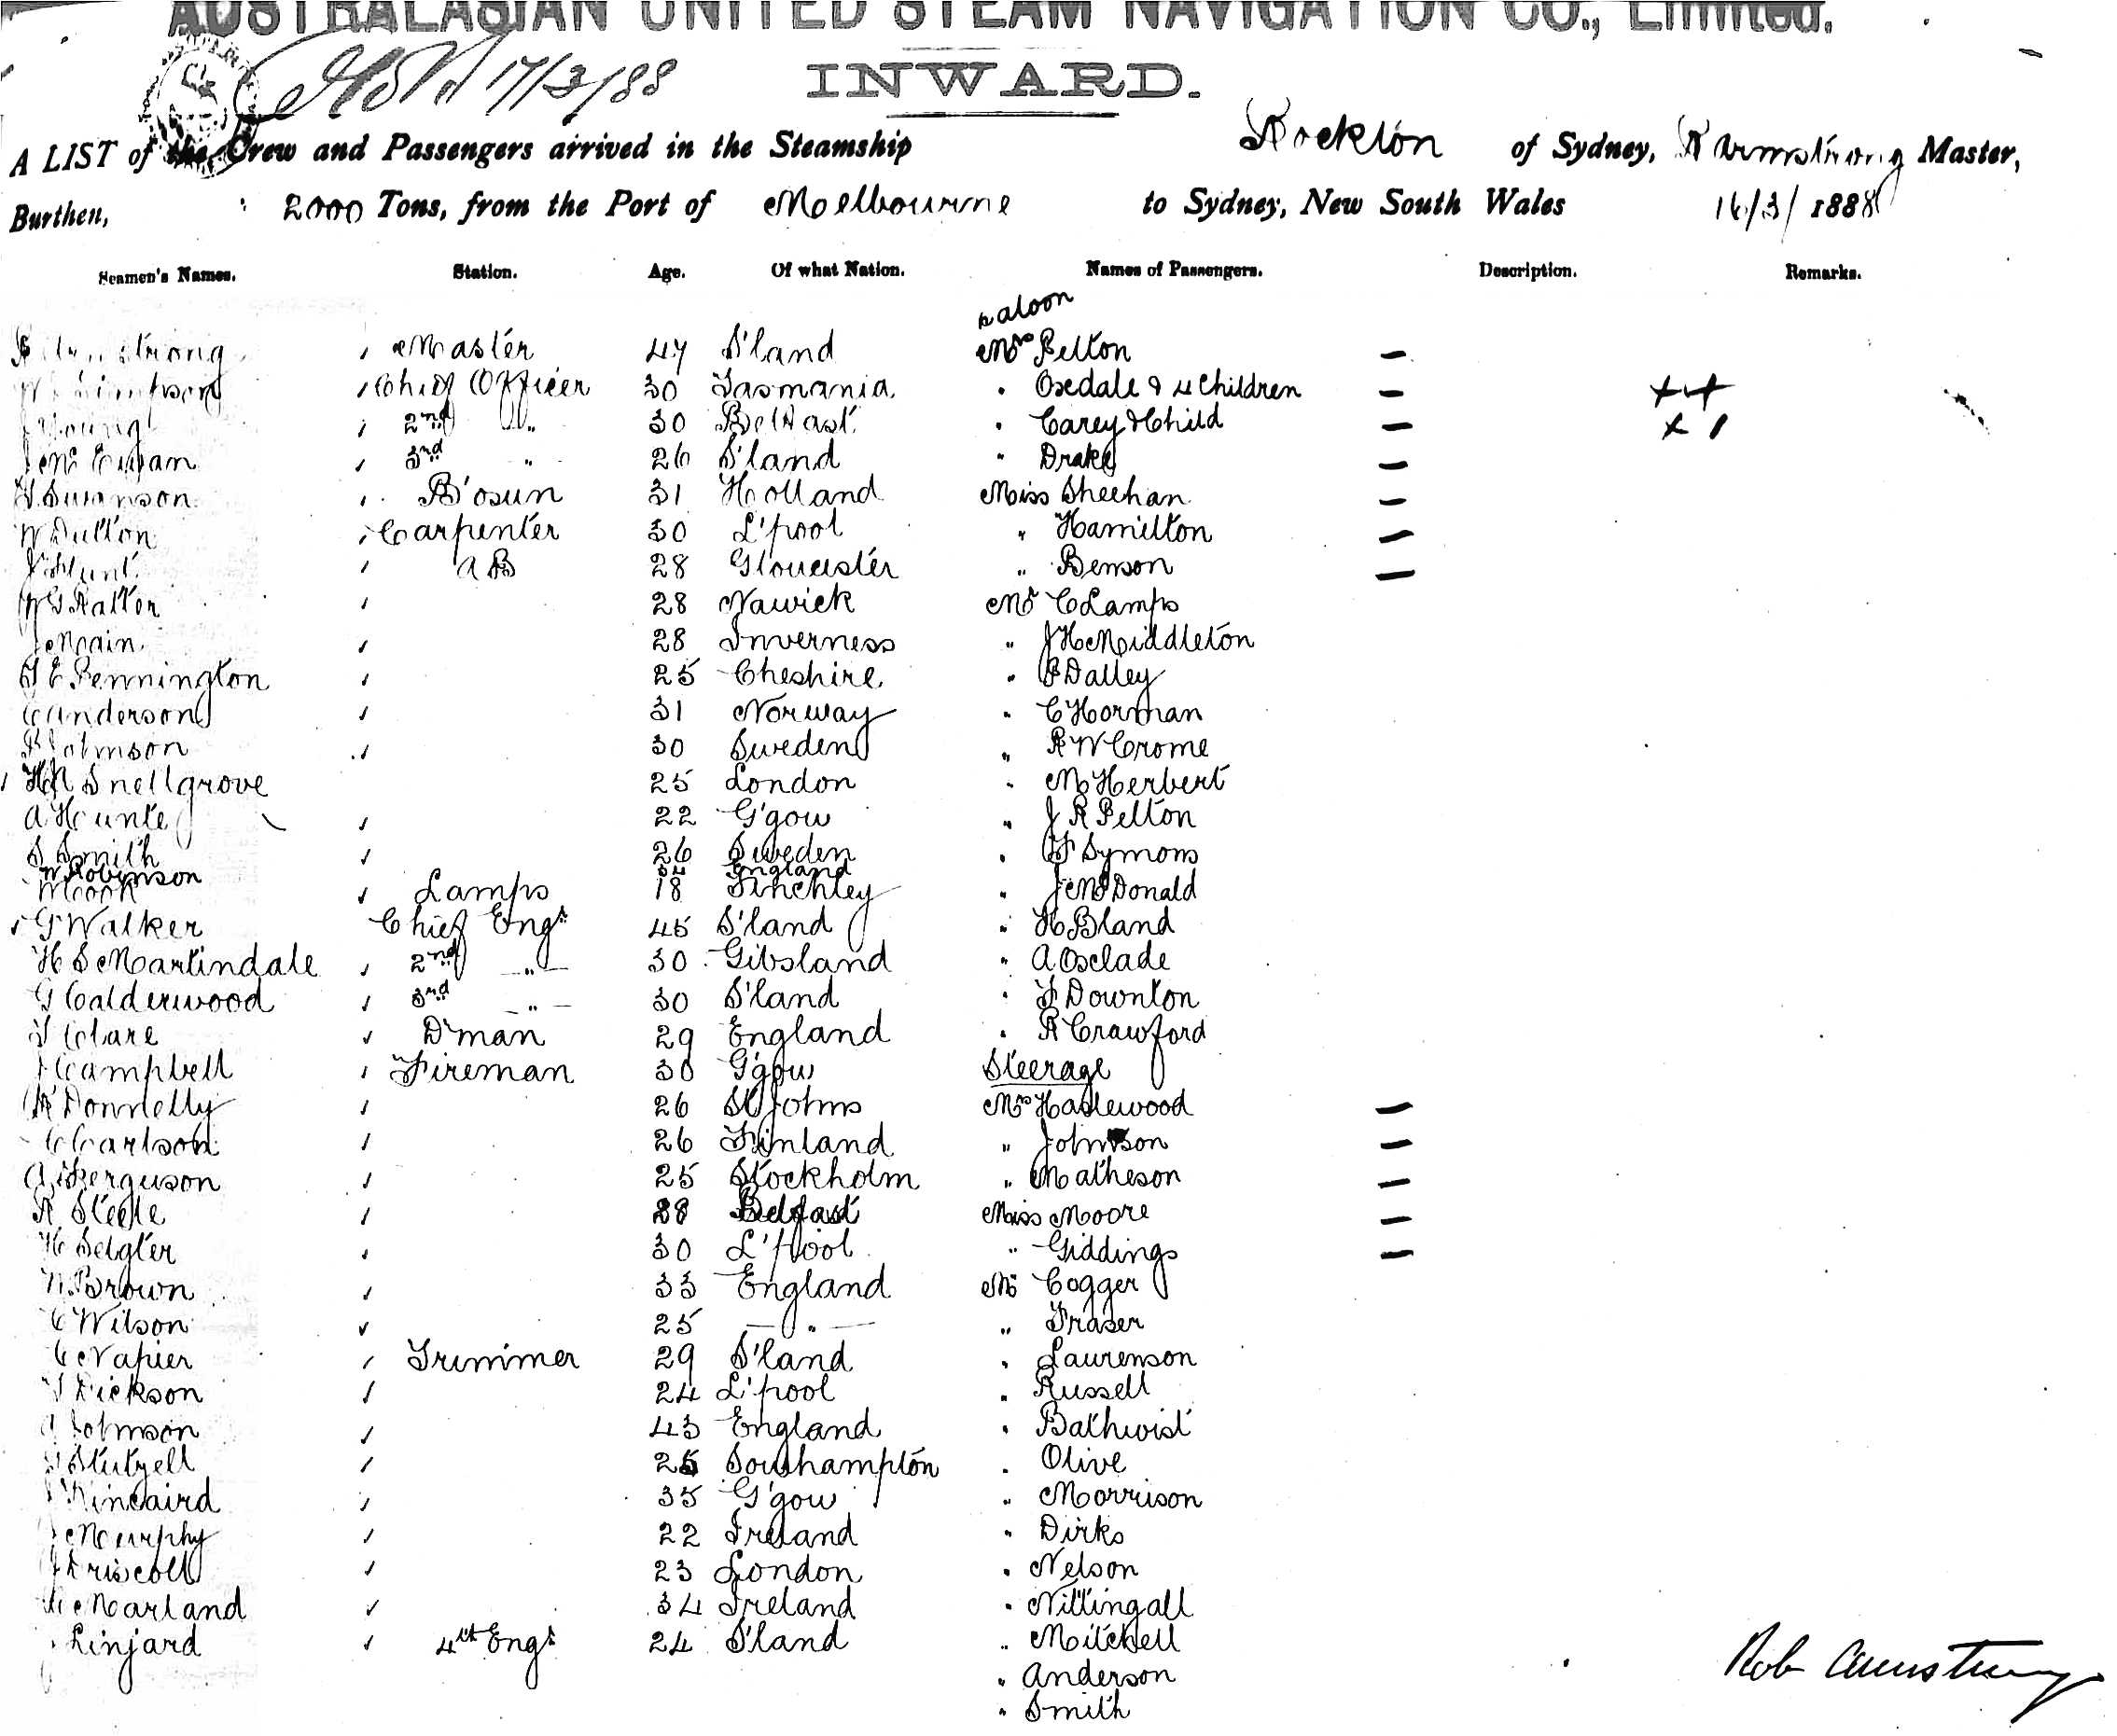 AUSTRALASIAN UNITED STEAM NAVIGATION CO., Limited.
17/3/88
INWARD.
A LIST of the Crew and Passengers arrived in the Steamship Rockton of Sydney, R Armstrong Master,
Burthen, 2000 Tons, from the Port of Melbourne to Sydney, New South Wales 16/3/1888
Seamen's Names. Station. Age. Of what Nation. Names of Passengers. Description. Remarks.
Saloon
Armstrong Master 47 S'land Mrs Pelton —
Chief Officer 30 Tasmania " Osedale & 4 Children — ++
J Young 2nd " 30 Belfast " Carey & Child — + 1
J McEwan 3rd " 26 S'land " Drake —
Swanson B'osun 31 Holland Miss Sheehan —
W Dutton Carpenter 30 L'pool " Hamilton —
J Hunt AB 28 Gloucester " Benson —
W G Ratter 28 Nawick Mr C Lamps
J Main 28 Inverness " J H Middleton
Pennington 25 Cheshire " P Dalley
C Anderson 31 Norway " C Horman
Johnson 30 Sweden " R W Crome
Snellgrove 25 London " M Herbert
A Hunte 22 G'gow " J R Pelton
S Smith 26 Sweden " F Symons
W Robinson 34 England
W Cook Lamps 18 Finchley " J McDonald
G Walker Chief Engr 45 S'land " H Bland
H S Martindale 2nd — " — 30 Gibsland " A Osclade
G Calderwood 3rd — " — 30 S'land " F Downton
Clare D'man 29 England " R Crawford
Campbell Fireman 30 G'gow Steerage
Donnelly 26 St Johns Mrs Haslewood —
C Carlson 26 Finland " Johnson —
A Ferguson 25 Stockholm " Matheson —
R Steele 28 Belfast Miss Moore —
H Selgter 30 L'pool " Giddings —
W Brown 33 England Mr Cogger
C Wilson 25 — " — " Fraser
C Napier Trimmer 29 S'land " Laurenson
Dickson 24 L'pool " Russell
Johnson 43 England " Bathwist
Stutzell 25 Southampton " Olive
Kincaird 35 G'gow " Morrison
J Murphy 22 Ireland " Dirks
J Driscoll 23 London " Nelson
Marland 34 Ireland " Nittingall
Linjard 4th Engr 24 S'land " Mitchell
" Anderson
" Smith
Rob Armstrong